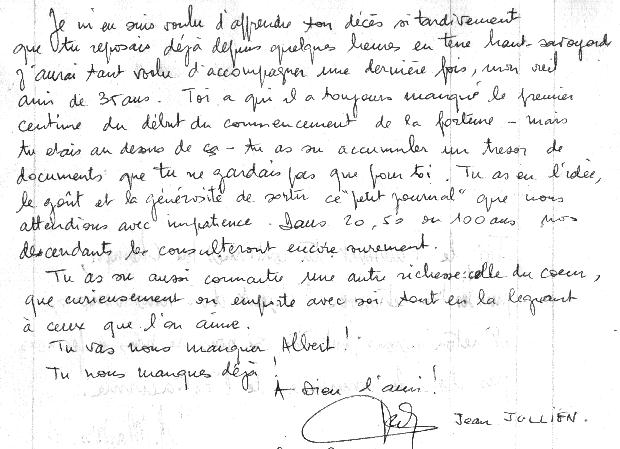 Je m'en suis voulu d'apprendre ton décès si tardivement
que tu reposais déjà depuis quelques heures en terre haut-savoyard
J'aurai tant voulu t'accompagner une dernière fois, mon vieil
ami de 35 ans. Toi a qui il a toujours manqué le premier
centime du début du commencement de la fortune - mais
tu étais au dessus de ça - tu as su accumuler un tresor de
documents que tu ne gardais pas que pour toi. Tu as eu l'idée,
le goût et la générosité de sortir ce "petit journal" que nous
attendions avec impatience. Dans 20, 50 ou 100 ans nos
descendants le consulteront encore surement.
Tu as su aussi connaître une autre richesse: celle du coeur,
que curieusement on emporte avec soi tout en la leguant
à ceux que l'on aime.
Tu vas nous manquer Albert!
Tu nous manques déjà!
A Dieu l'ami!
Jean JULLIEN.